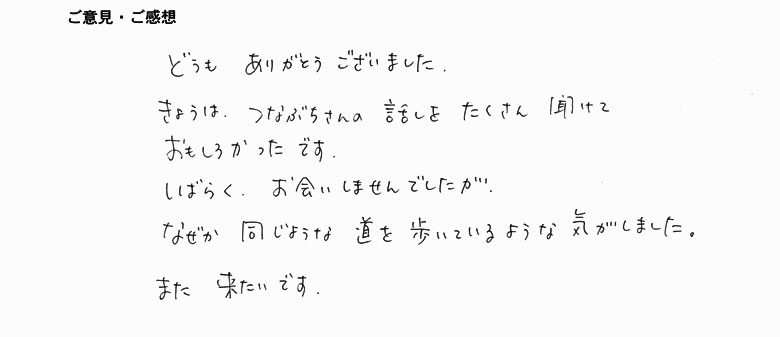 ご意見・ご感想
どうも ありがとう ございました.
きょうは. つなぶちさんの 話しを たくさん 聞けて
おもしろかったです.
しばらく. お会いしませんでしたが.
なぜか 同じような 道を 歩いているような 気がしました。
また 来たいです.